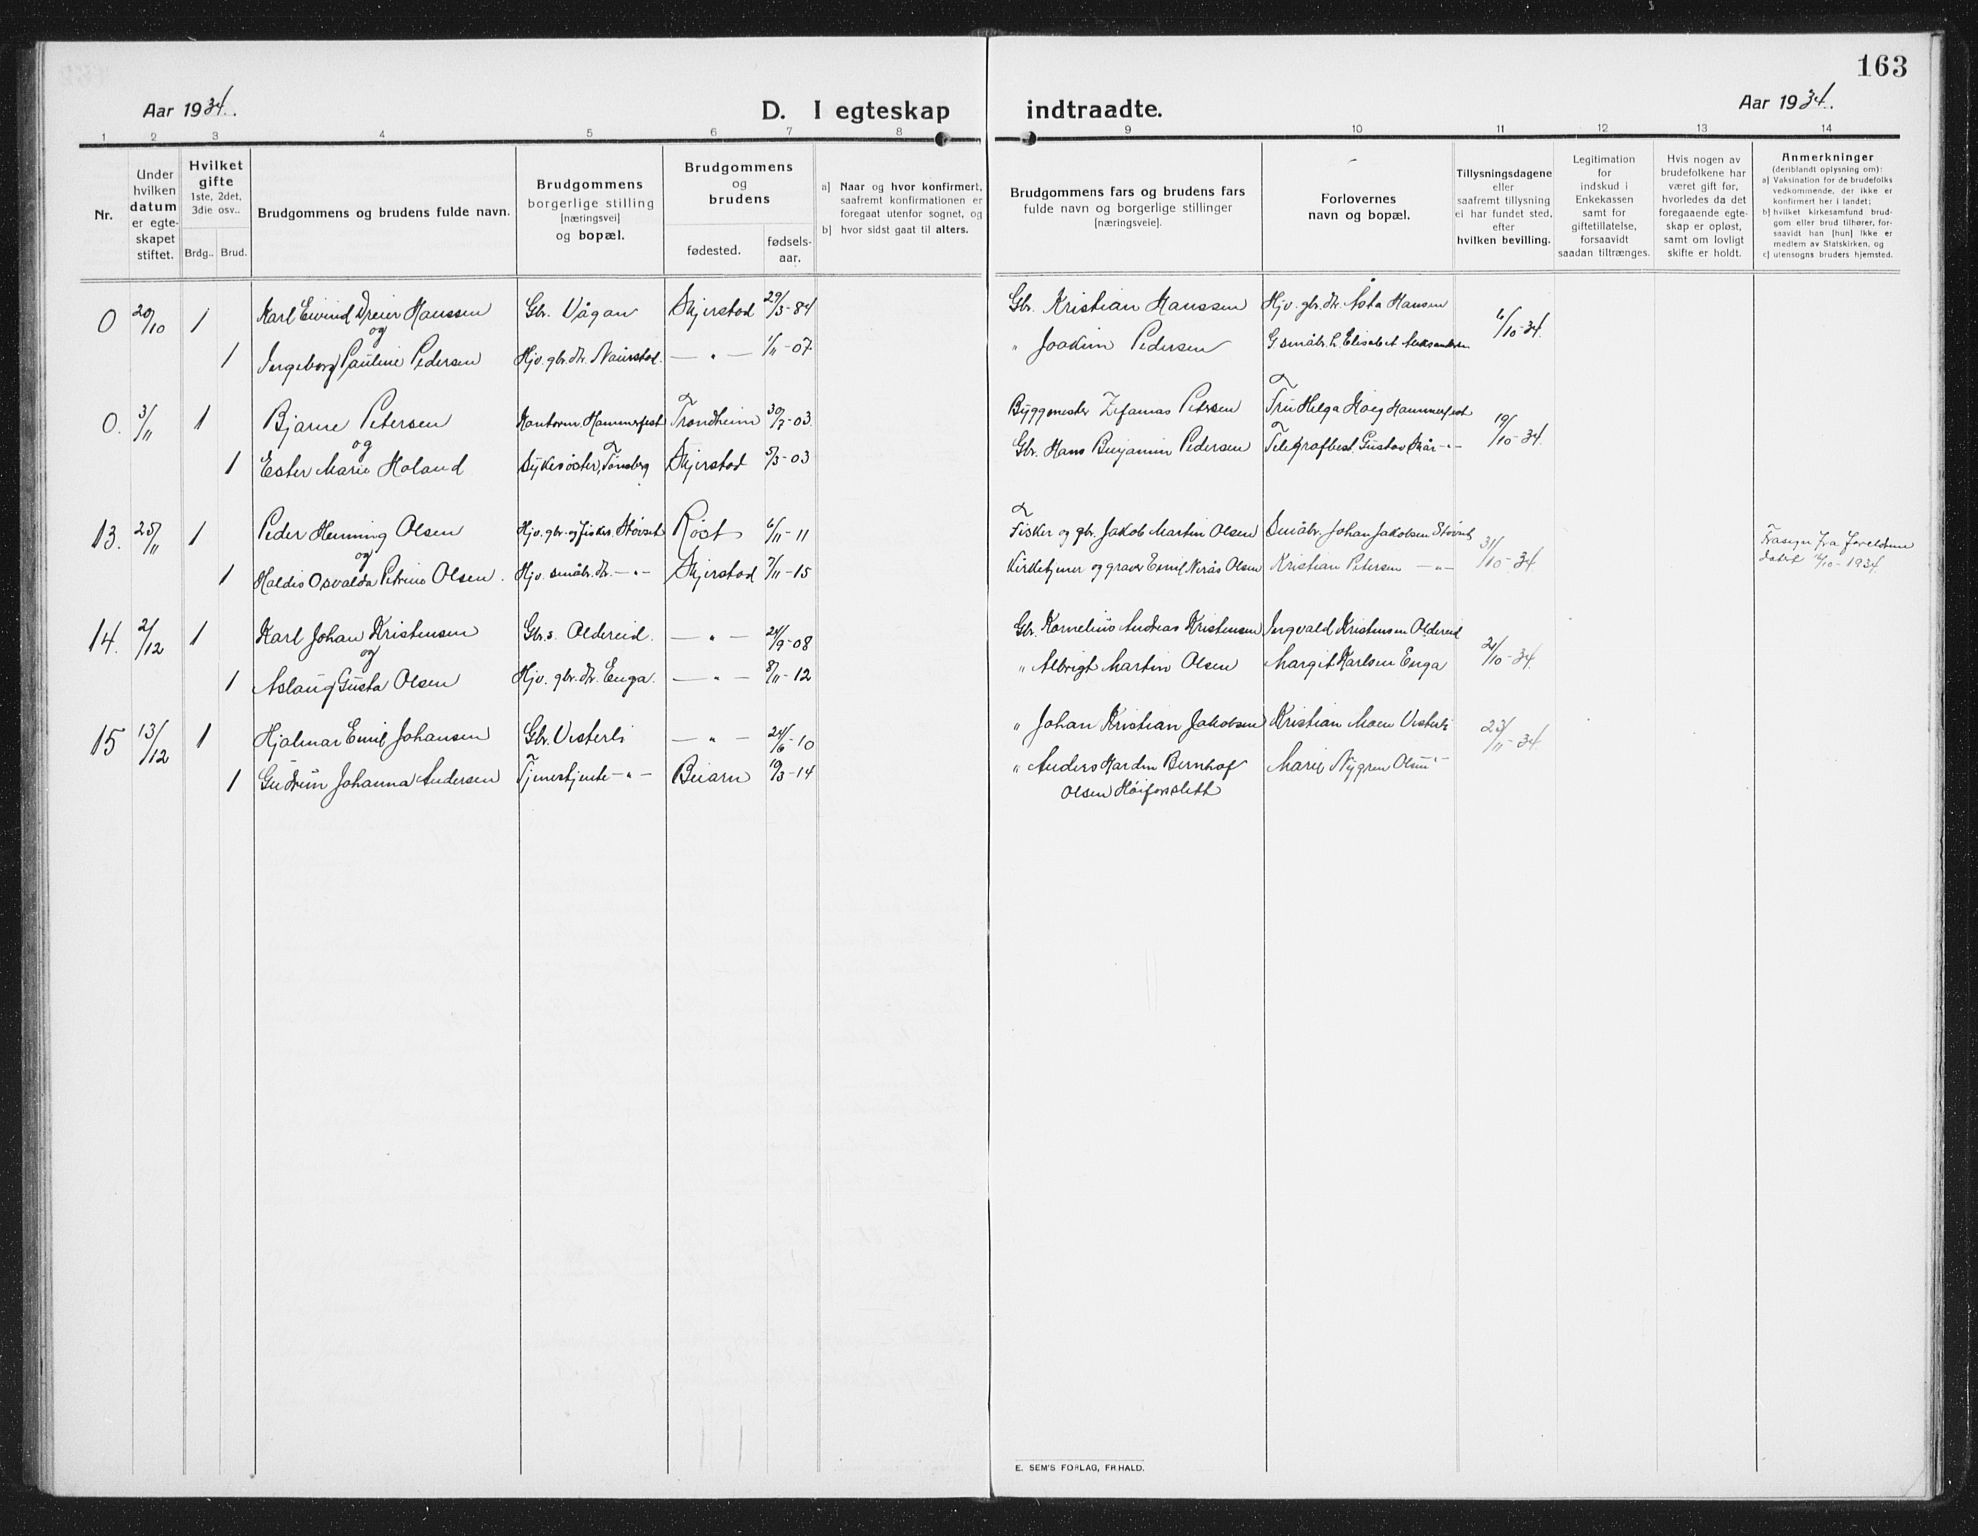 163
Aar 1934. D. I egteskap indtraadte. Aar 1934.
1 2 3 4 5 6 7 8 9 10 11 12 13 14
Nr.
Under
hvilken
datum
er egte-
skapet
stiftet.
Hvilket
gifte
1ste, 2det,
3die osv..
Brdg.. Brud.
Brudgommens og brudens fulde navn.
Brudgommens
borgerlige stilling
[næringsvei]
og bopæl.
Brudgommens
og
brudens
fødested.
fødsels-
aar.
a] Naar og hvor konfirmert,
saafremt konfirmationen er
foregaat utenfor sognet, og
b] hvor sidst gaat til alters.
Brudgommens fars og brudens fars
fulde navn og borgerlige stillinger
[næringsveie].
Forlovernes
navn og bopæl.
Tillysningsdagene
eller
saafremt tillysning
ei har fundet sted,
efter
hvilken bevilling.
Legitimation
for
indskud i
Enkekassen
samt for
giftetillatelse,
forsaavidt
saadan tiltrænges.
Hvis nogen av
brudefolkene har
været gift før,
hvorledes da det
foregaaende egte-
skap er opløst,
samt om lovligt
skifte er holdt.
Anmerkninger
(deriblandt oplysning om):
a] Vaksination for de brudefolks
vedkommende, der ikke er
konfirmert her i landet;
b] hvilket kirkesamfund brud-
gom eller brud tilhører, for-
saavidt han [hun] ikke er
medlem av Statskirken, og
c] utensogns bruders hjemsted.
0 20/10 1 Karl Eivind Dreier Hanssen Gbr. Vågan Skjerstad 29/3-84 Gbr. Kristian Hanssen Hjv. gbr. dr. Åsta Hansen 6/10-34.
og
1 Ingeborg Pauline Pedersen Hjv. gbr. dr. Naurstad. — " — 1/11-07. " Joakim Pedersen G småbr. h. Elisabet Aleksandersen
0. 3/11 1 Bjarne Petersen Kontorm. Hammerfest Trondheim 30/7-03. Byggmester Zefanias Petersen Fru Helga Hoeg Hammerfest 19/10-34.
og
1 Ester Marie Holand Sykesøster, Tønsberg Skjerstad 5/3-03 Gbr. Hans Benjamin Pedersen Telegrafbest. Gustav Skår -"-
13. 25/11 1 Peder Henning Olsen Hjv. gbr. og fisker. Støvset Røst 6/11-11 Fisker og gbr. Jakob Martin Olsen Småbr. Johan Jakobsen Støvset 31/10-34. Frasegn fra foreldrene
og
1 Haldis Osvalda Petrine Olsen. Hjv. småbr. dr. — " — Skjerstad 7/11-15 Kirketjener og graver Emil Nerås Olsen Kristian Petersen — " — datert 16/10-1934.
14. 2/12 1 Karl Johan Kristensen Gbr. s. Oldereid. — " — 24/9-08 Gbr. Kornelius Andreas Kristensen Ingvald Kristensen Oldereid 21/10-34.
og
1 Aslaug Gusta Olsen Hjv. gbr. dr. Enga. — " — 8/11-12 " Albrigt Martin Olsen Margit Karlsen Enga
15 13/12 1 Hjalmar Emil Johansen Gbr. Vesterli — " — 24/6-10 " Johan Kristian Jakobsen Kristian Moen Vesterli 23/11-34.
1 Gudrun Johanna Andersen Tjenestjente -"- Beiarn 19/3-14 " Anders Hardin Bernhof Marie Nygren Olsen "-
Olsen Høiforslett
E. SEM'S FORLAG, FR.HALD.